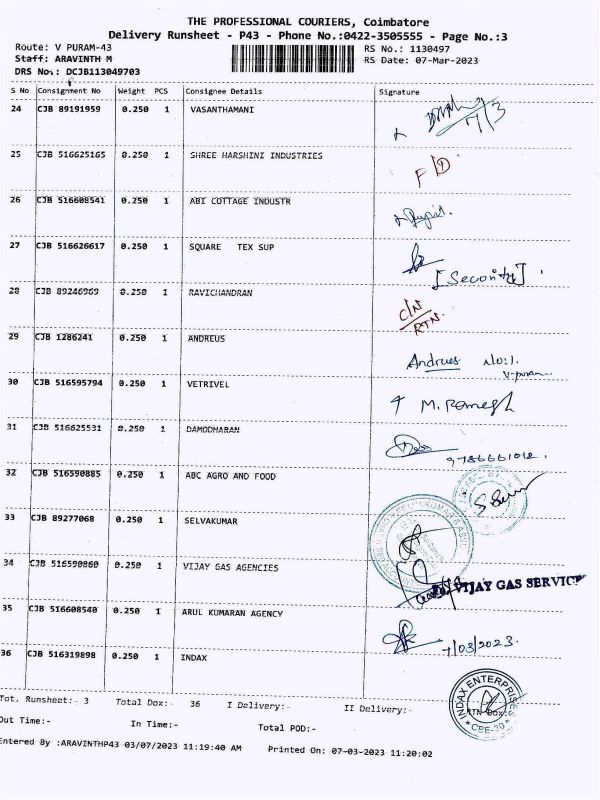 THE PROFESSIONAL COURIERS, Coimbatore
Delivery Runsheet - P43 - Phone No.:0422-3505555 - Page No.:3
Route: V PURAM-43 RS No.: 1130497
Staff: ARAVINTH M RS Date: 07-Mar-2023
DRS No: DCJB113049703
S No Consignment No Weight PCS Consignee Details Signature
24 CJB 89191959 0.250 1 VASANTHAMANI 7/3
25 CJB 516625165 0.250 1 SHREE HARSHINI INDUSTRIES F D
26 CJB 516608541 0.250 1 ABI COTTAGE INDUSTR
27 CJB 516626617 0.250 1 SQUARE TEX SUP [Security]
28 CJB 89246969 0.250 1 RAVICHANDRAN C/N
RTN.
29 CJB 1286241 0.250 1 ANDREUS Andrues No:1.
V-puram
30 CJB 516595794 0.250 1 VETRIVEL M. Ramesh
31 CJB 516625531 0.250 1 DAMODHARAN
9786661012.
32 CJB 516590885 0.250 1 ABC AGRO AND FOOD
33 CJB 89277068 0.250 1 SELVAKUMAR
34 CJB 516590860 0.250 1 VIJAY GAS AGENCIES VIJAY GAS SERVICE
35 CJB 516608540 0.250 1 ARUL KUMARAN AGENCY 7/03/2023.
36 CJB 516319898 0.250 1 INDAX INDAX ENTERPRISES
CBE-30
Tot. Runsheet:- 3 Total Dox:- 36 I Delivery:- II Delivery:-
Out Time:- In Time:- Total POD:-
Entered By :ARAVINTHP43 03/07/2023 11:19:40 AM Printed On: 07-03-2023 11:20:02